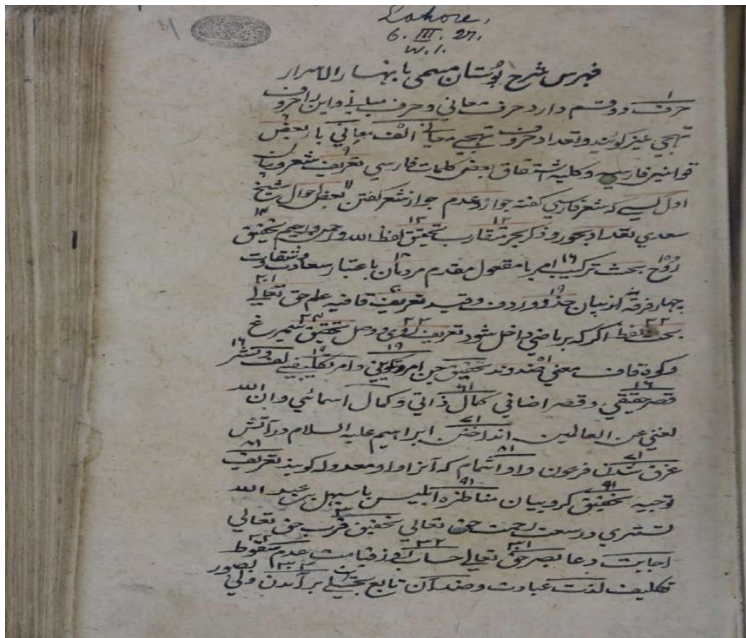 Lahore,
6. III. 27.
W. I.
فهرس شرح بوستان مسمی بابهار الاسرار
حرف دو قسم دارد حرف معانی و حرف مبانی و این را حروف
تهجی نیز گویند و تعداد حروف تهجی معانی الف معانی با بعض
قوانین فارسی و کلیه اشتقاق بعض کلمات فارسی تعریف شعر و بیان
اول کسی که شعر فارسی گفته جواز و عدم جواز شعر گفتن بعض احوال شیخ
سعدی تعداد بحور و ذکر بحر متقارب تحقیق لفظ الله و اسم تحقیق
روح بحث ترکیب امر با مفعول مقدم مردمان باعتبار سعادت و شقاوت
چهار فرقه اند بیان حذو و ردف و قید تعریف قافیه علم حق تعالی
بحث لفظ اگر که بر ماضی داخل شود تعریف روی و وصل تحقیق سیمرغ
و کوه قاف معنی خداوند تحقیق جن امر تکوینی و امر تکلیفی لف و نشر
قصر حقیقی و قصر اضافی کمال ذاتی و کمال اسمائی و ان الله
لغنی عن العالمین انداختن ابراهیم علیه السلام در آتش
غرق شدن فرعون واو اشمام که آنرا واو معدوله گویند تعریف
توجیه تحقیق کروبیان مناظره ابلیس با سهل بن عبد الله
تستری در وسعت رحمت حق تعالی تحقیق قرب حق تعالی
اجابت دعا بصر حق تعالی حساب روز قیامت عدم سقوط
تکلیف لذت عبادت و ضد آن تابع تجلی بر آمدن ولی بصور